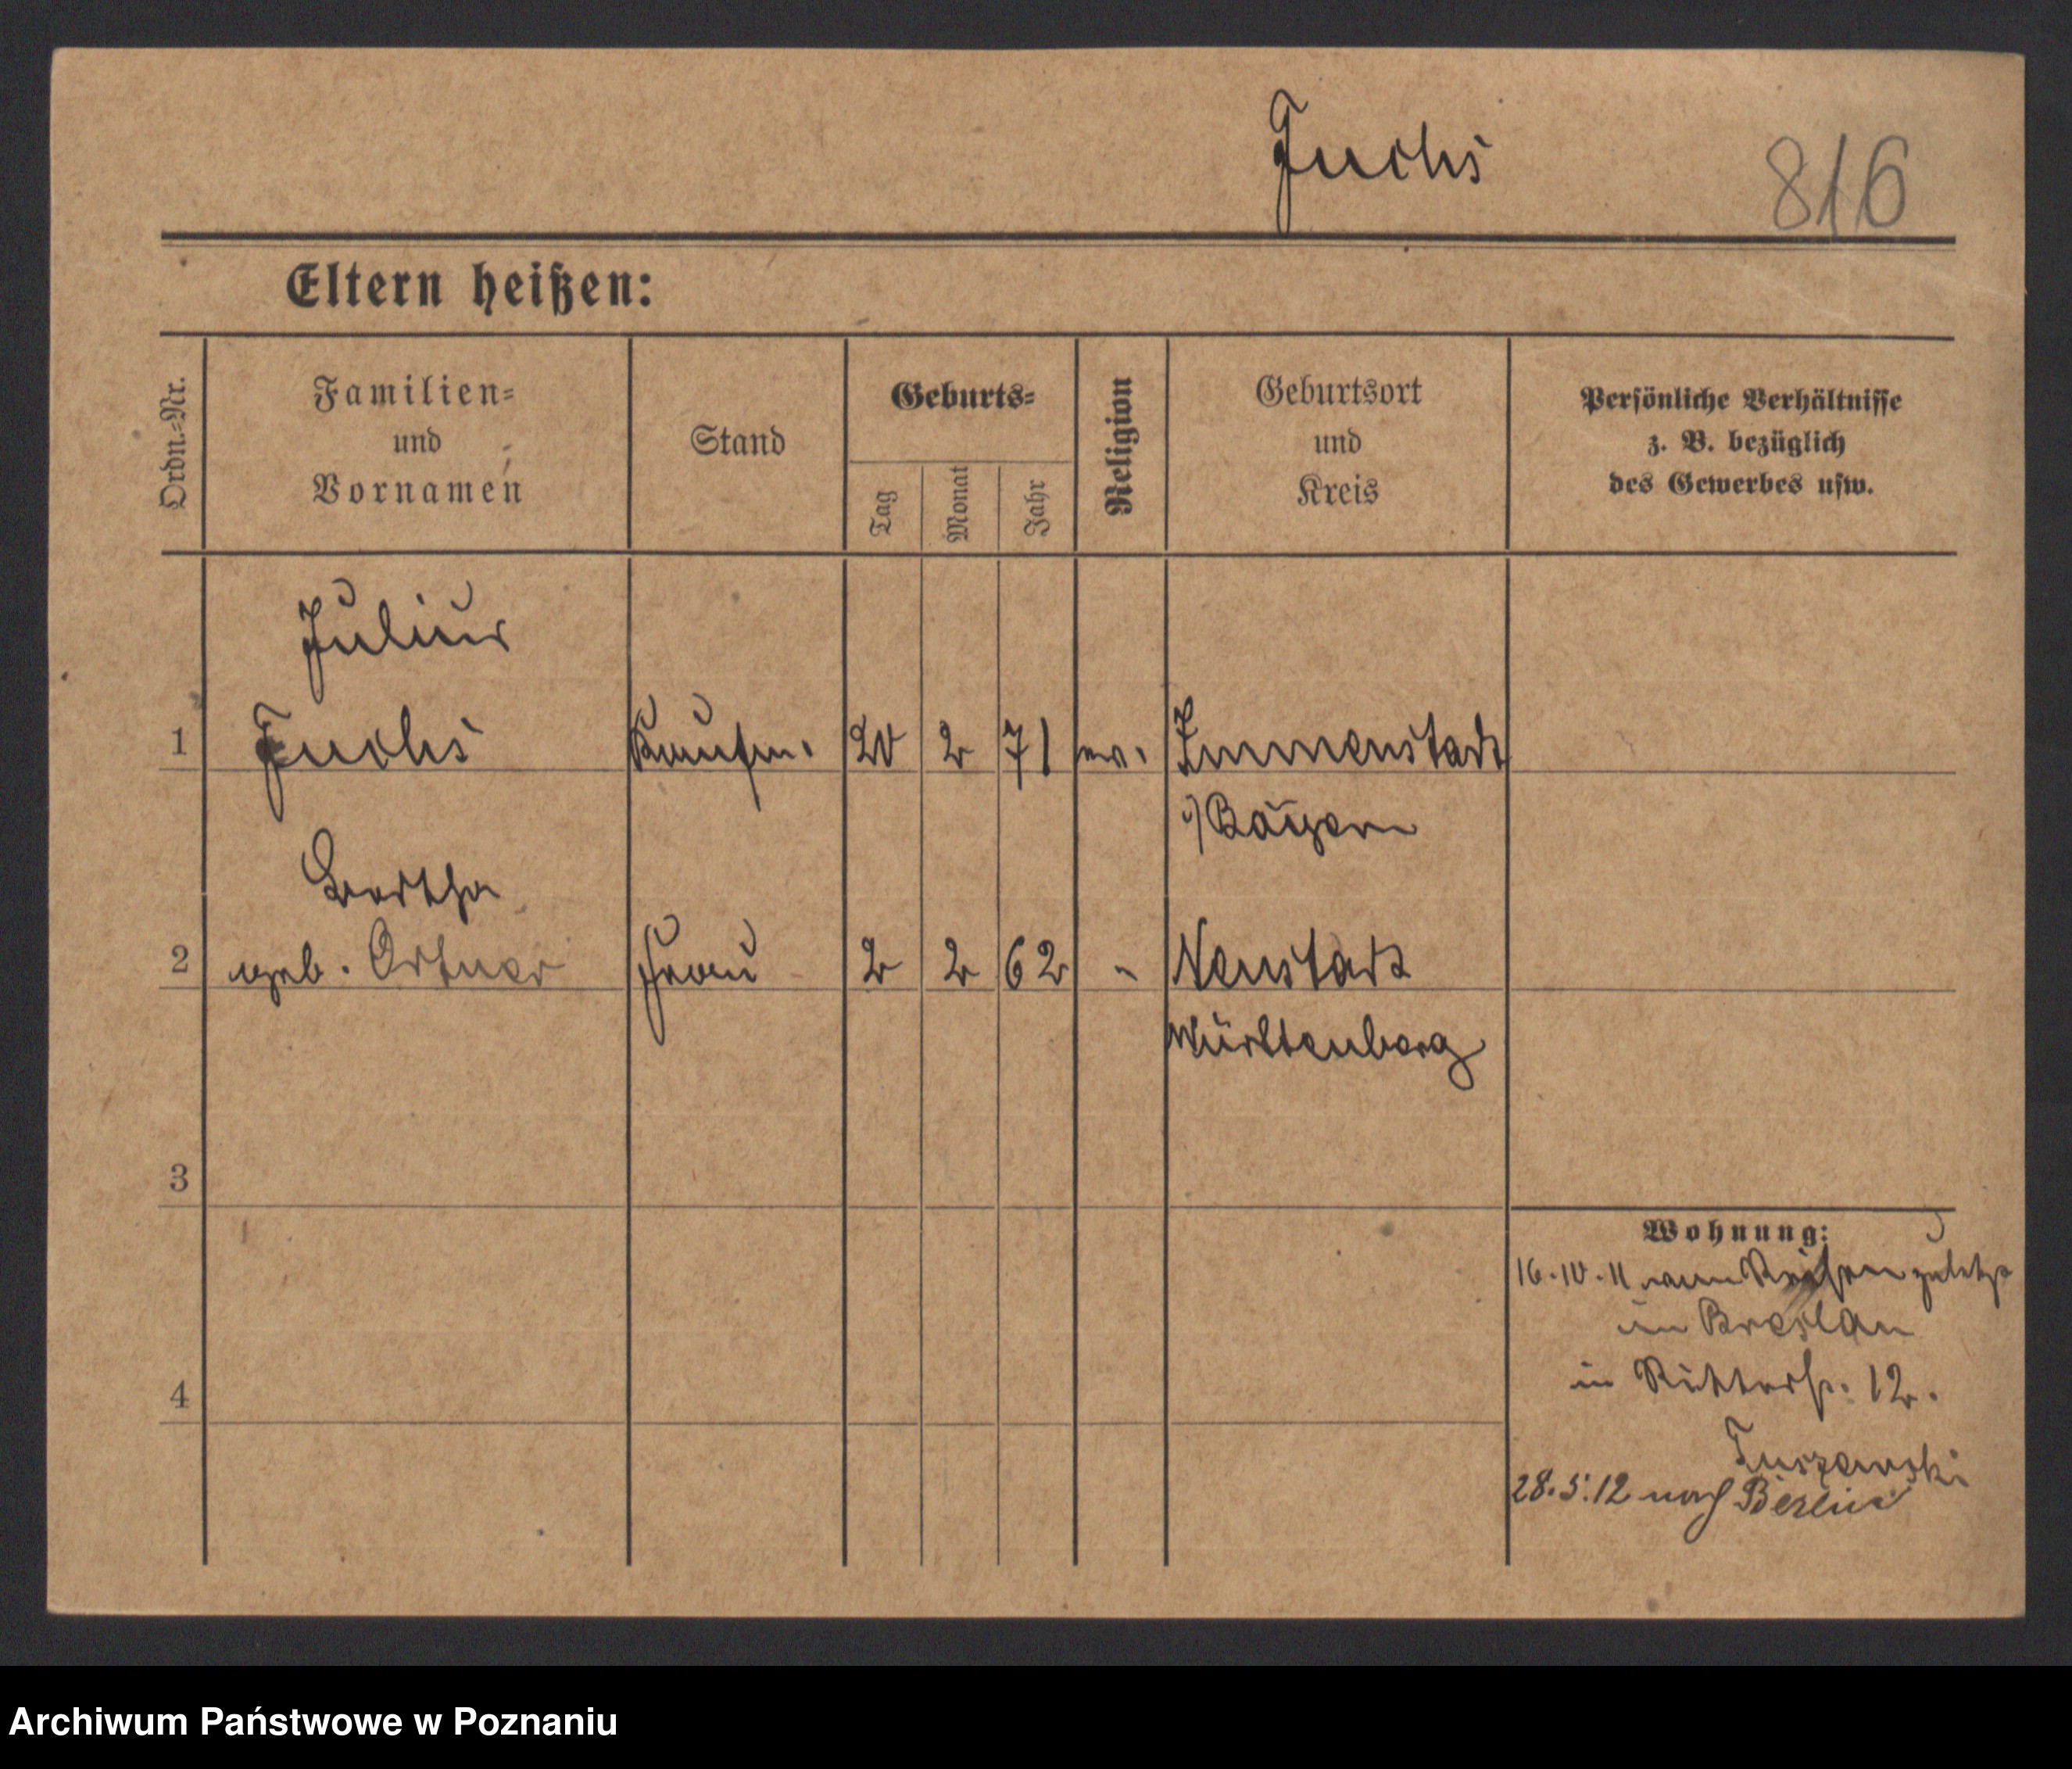 Fuchs 816
Eltern heißen:
Ordn.-Nr.
Familien-
und
Vornamen
Stand
Geburts-
Tag
Monat
Jahr
Religion
Geburtsort
und
Kreis
Persönliche Verhältnisse
z. B. bezüglich
des Gewerbes usw.
Julius
1 Fuchs Kaufm. 20 2 71 ev. Immenstadt
i/Bayern
Bertha
2 geb. Ortner Frau 2 2 62 " Neustadt
Württenberg
3
4
Wohnung:
16.10.11 vom Reisen zuletzt
in Breslau
in Ritterstr. 12.
Tuszewski
28.5.12 nach Berlin
Archiwum Państwowe w Poznaniu